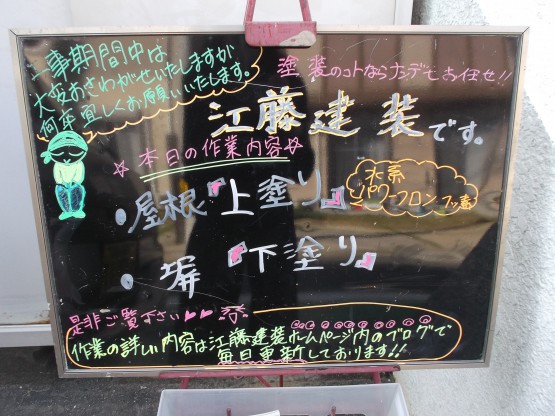 工事期間中は
大変おさわがせいたしますが
何卒宜しくお願いいたします。
塗装のコトならナンデもお任せ!!
江藤建装です。
☆本日の作業内容☆
・屋根『上塗り』
水系
パワーフロン フッ素
・塀『下塗り』
是非ご覧下さい♥♥
作業の詳しい内容は江藤建装ホームページ内のブログで
毎日更新しております!!